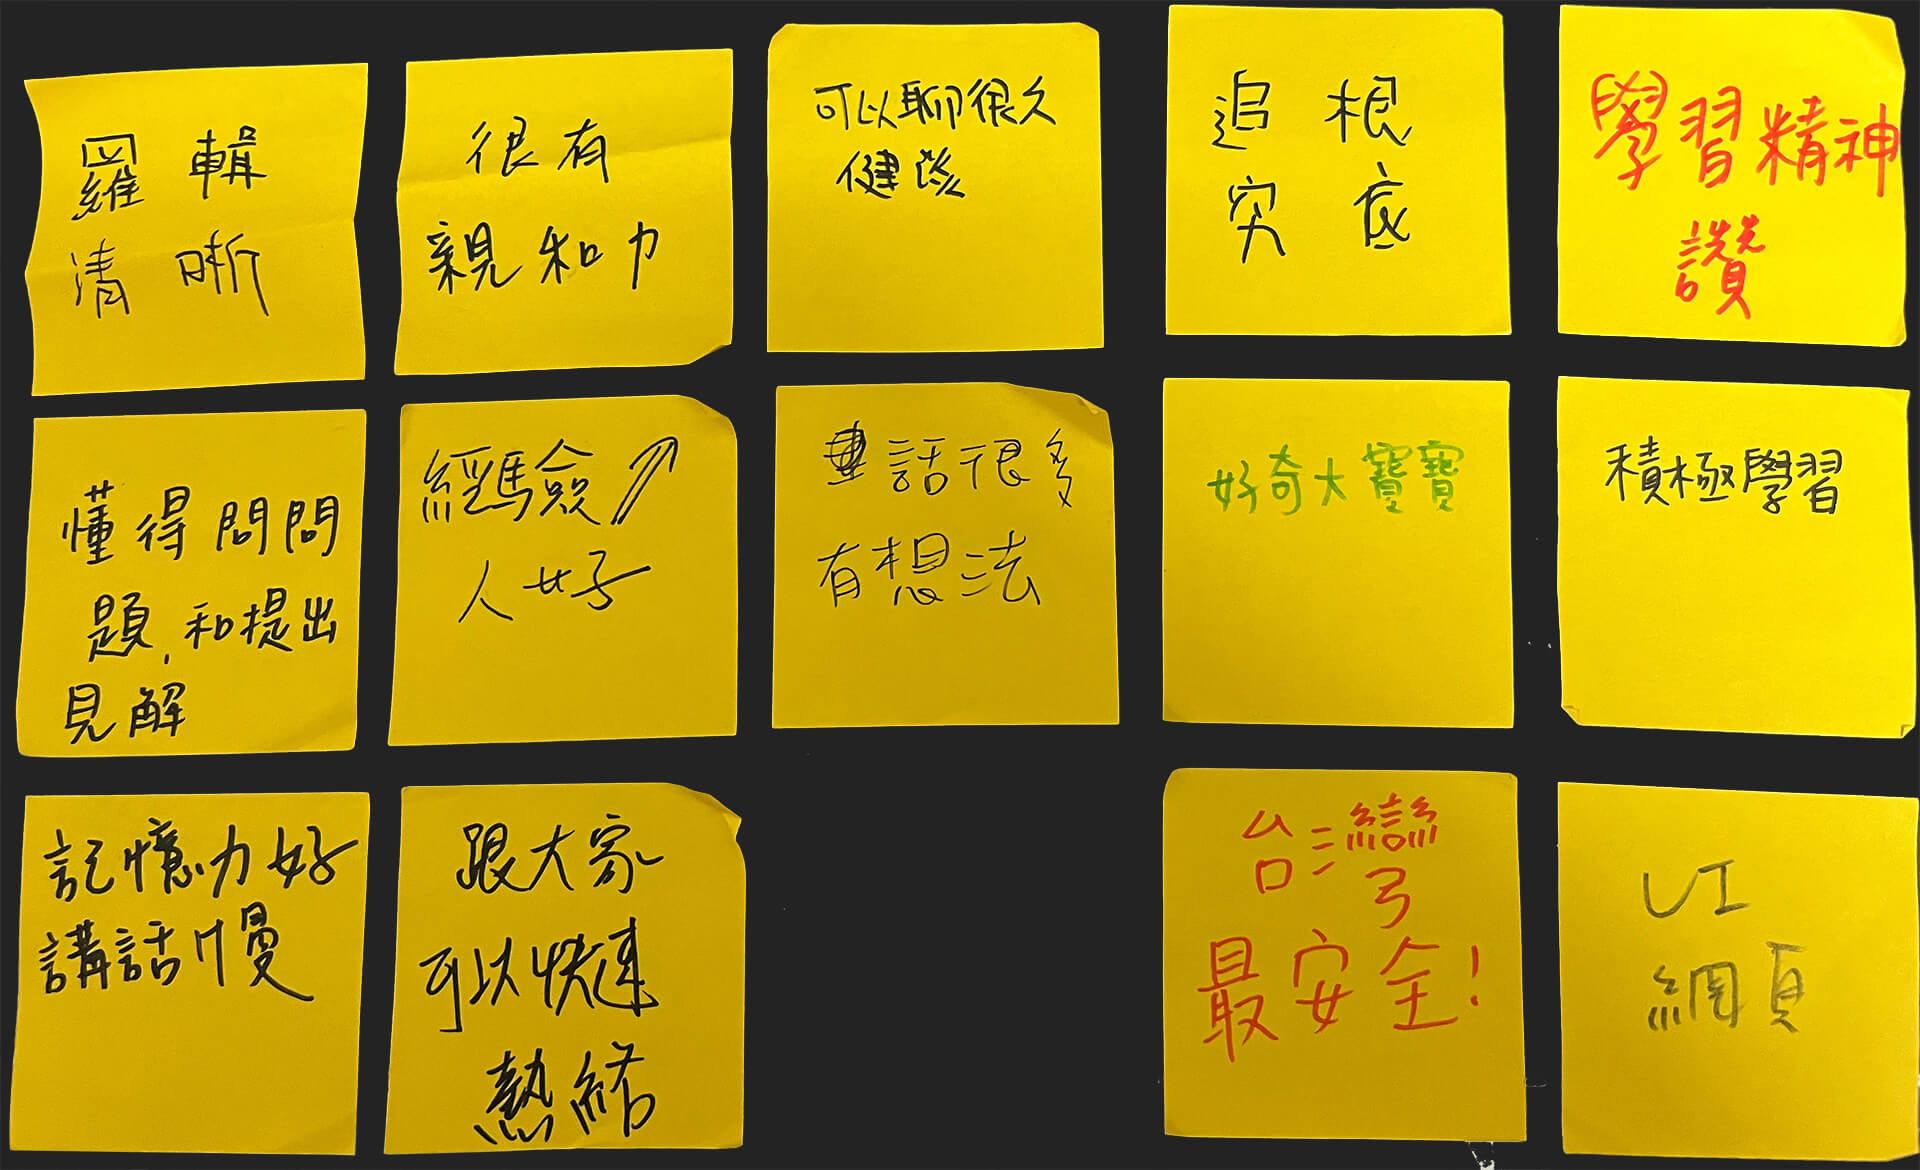 羅輯
清晰
很有
親和力
可以聊很久
健談
追根
究底
學習精神
讚
懂得問問
題,和提出
見解
經驗↗
人好
話很多
有想法
好奇大寶寶
積極學習
記憶力好
講話慢
跟大家
可以快速
熱絡
台灣
最安全!
UI
網頁